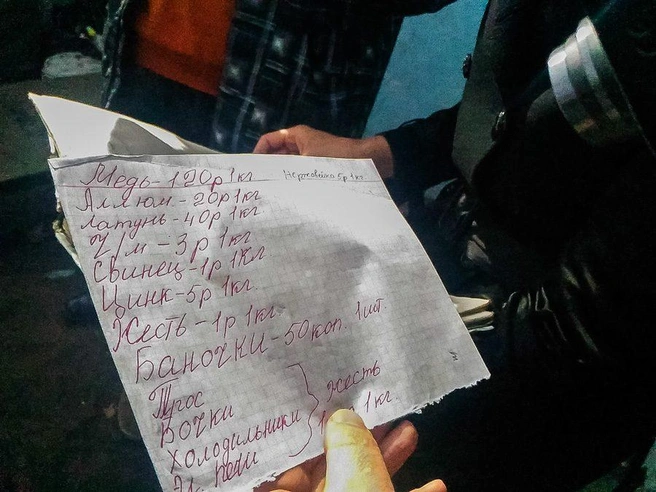 Медь - 120р 1кг
Нержавейка 5р 1кг
Аллюм - 20р 1кг
Латунь - 40р 1кг
Ч/м - 3р 1кг
Свинец - 1р 1кг
Цинк - 5р 1кг.
Жесть - 1р 1кг.
Баночки - 50 коп. 1шт.
Бочки
Холодильники
Эл. печи
Жесть
1кг.